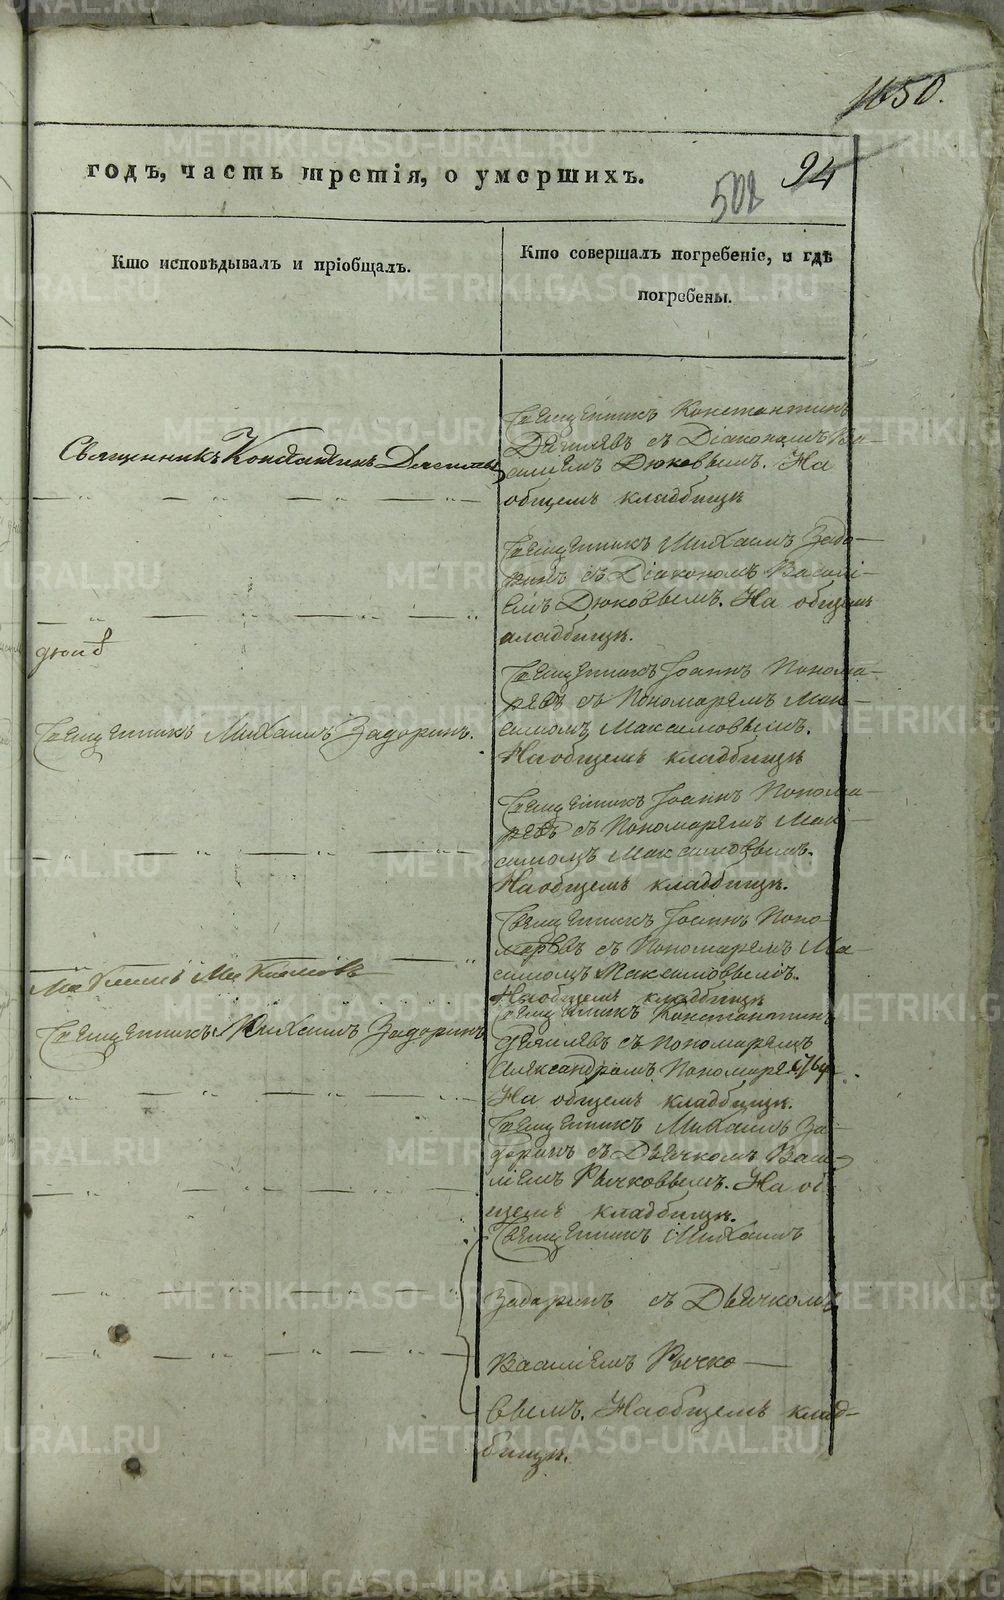 1650.
годъ, часть третія, о умершихъ.
94
502
Кто исповѣдывалъ и пріобщалъ.
Кто совершалъ погребеніе, и гдѣ
погребены.
Священникъ Константинъ
Священникъ Константинъ
съ Діакономъ Ва-
силіемъ Дюковымъ. На
общемъ кладбищѣ
Священникъ Михаилъ Задо-
ринъ съ Діакономъ Василі-
емъ Дюковвымъ. На общемъ
кладбищѣ.
Священникъ Михаилъ Задоринъ.
Священникъ Іоаннъ Понома-
ревъ съ Пономаремъ Мак-
симомъ Максимовымъ.
На общемъ кладбищѣ
Священникъ Іоаннъ Понома-
ревъ съ Пономаремъ Мак-
симомъ Максимовымъ.
На общемъ кладбищѣ.
Священникъ Іоаннъ Поно-
маревъ съ Пономаремъ Ма-
симомъ Максимовымъ.
На общемъ кладбищѣ
Священникъ Михаилъ Задоринъ
Священникъ Константинъ
съ Пономаремъ
Александромъ
На общемъ кладбищѣ.
Священникъ Михаилъ За-
доринъ съ Дьячкомъ Васи-
ліемъ Рычковымъ. На об-
щемъ кладбищѣ.
Священникъ Михаилъ
Задоринъ съ Дьячкомъ
Василіемъ Рычко-
вымъ. На общемъ клад-
бищѣ.
METRIKI.GASO-URAL.RU